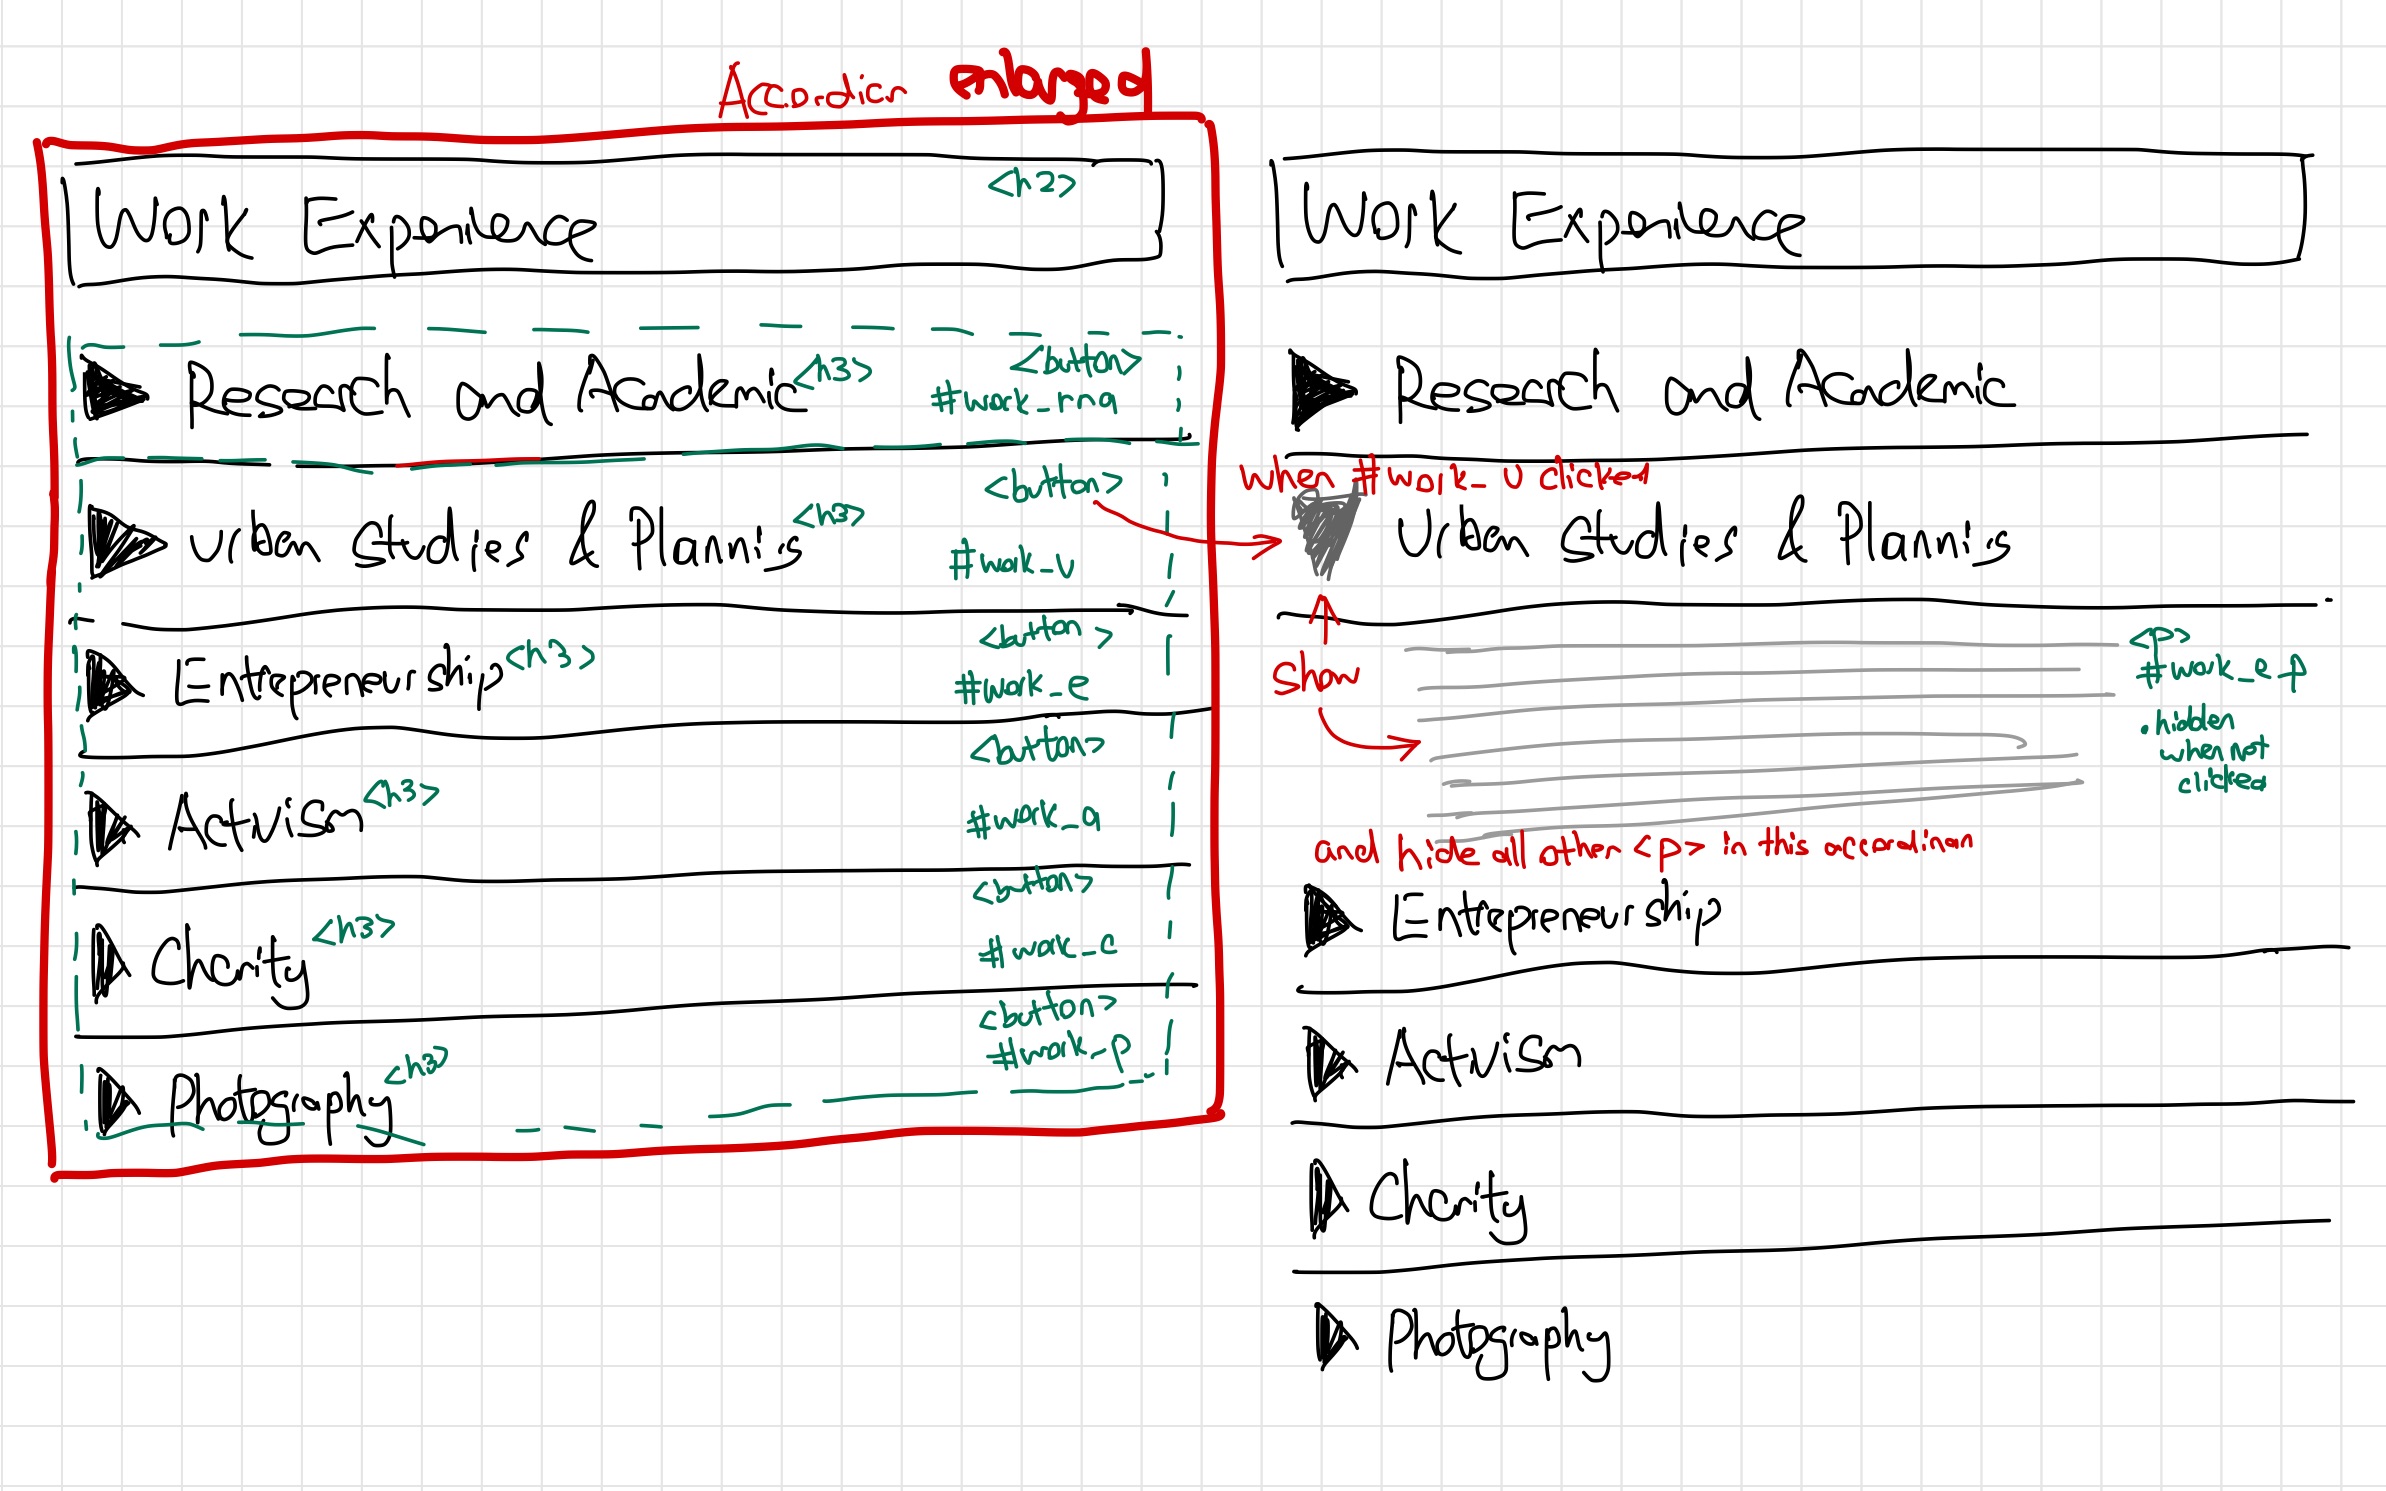 Accordion enlarged
Work Experience <h2>
Research and Academic <h3> <button>
#work_rna
<button>
Urban Studies & Planning <h3>
#work_u
<button>
Entrepreneurship <h3>
#work_e
<button>
Activism <h3>
#work_a
<button>
Charity <h3>
#work_c
<button>
#work_p
Photography <h3>
Work Experience
Research and Academic
when #work_u clicked
Urban Studies & Planning
show
<p>
#work_e_p
.hidden
when not
clicked
and hide all other <p> in this accordian
Entrepreneurship
Activism
Charity
Photography